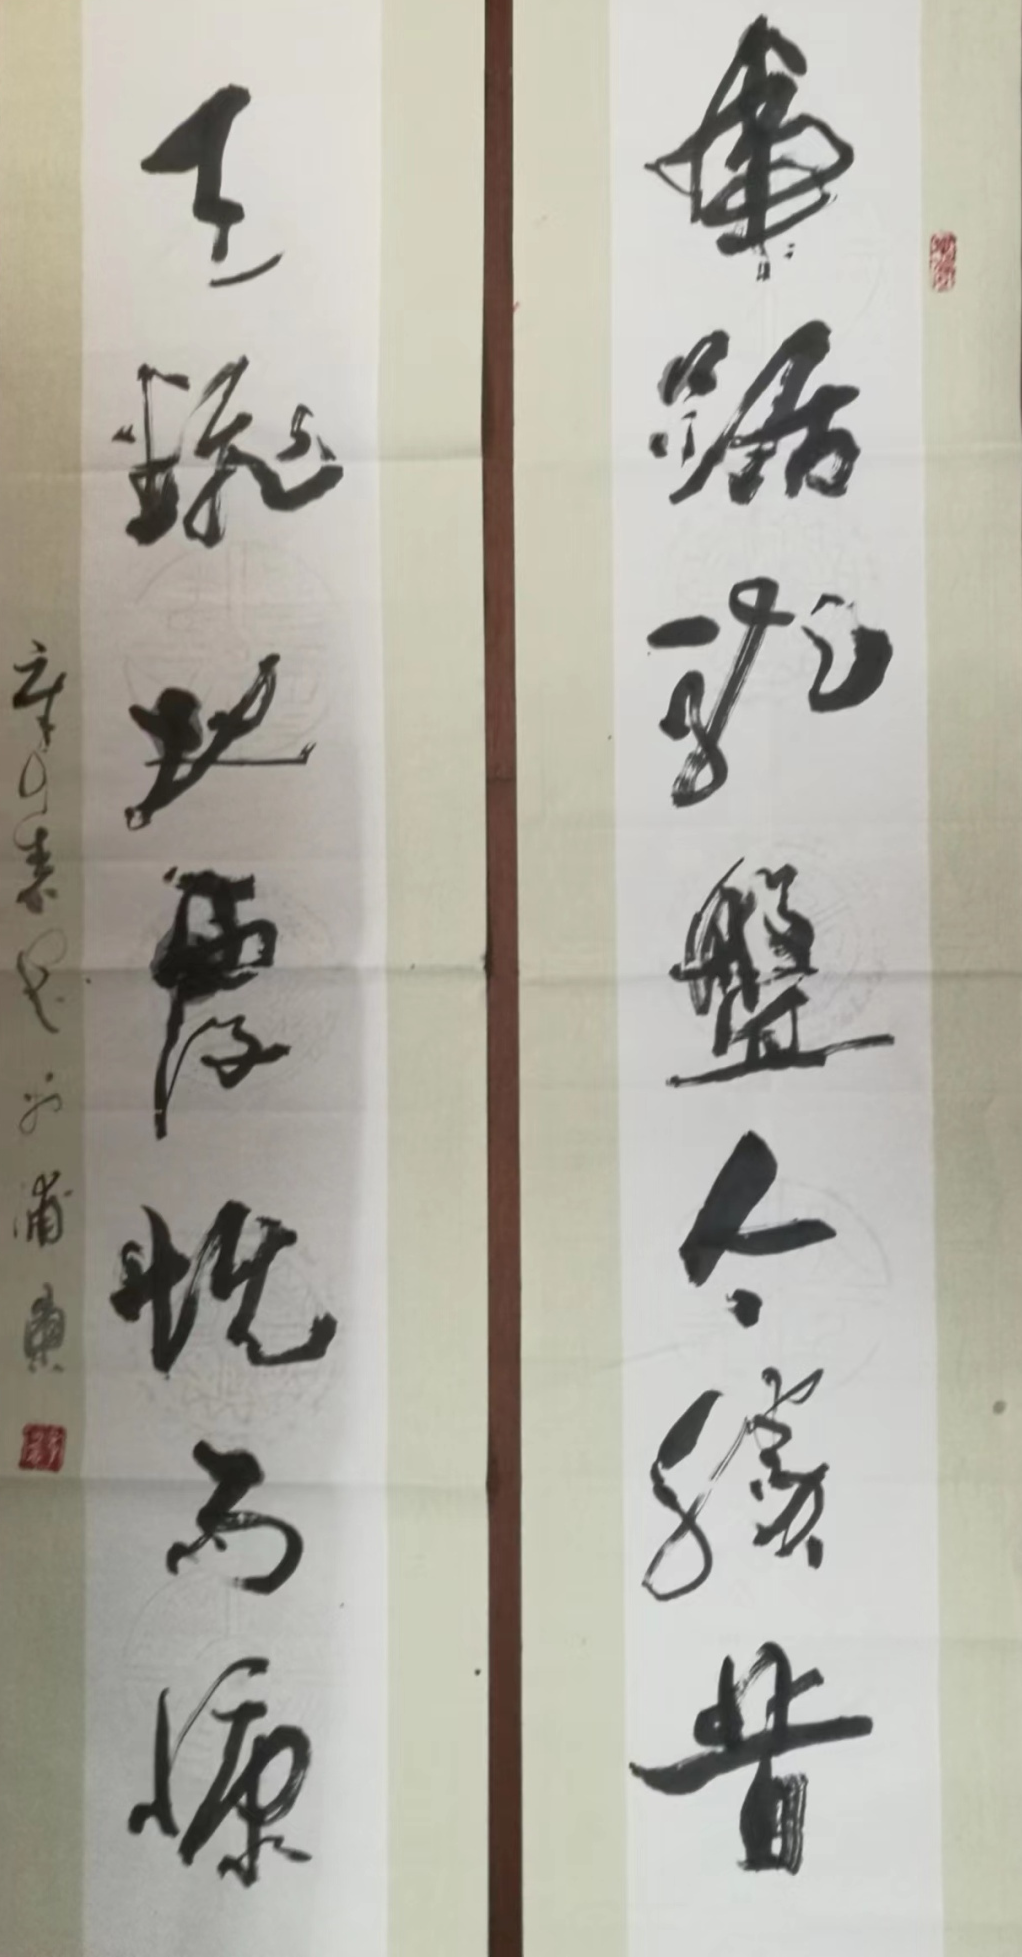 虎踞龍盤今勝昔
天翻地覆慨而慷
辛丑春
浦東